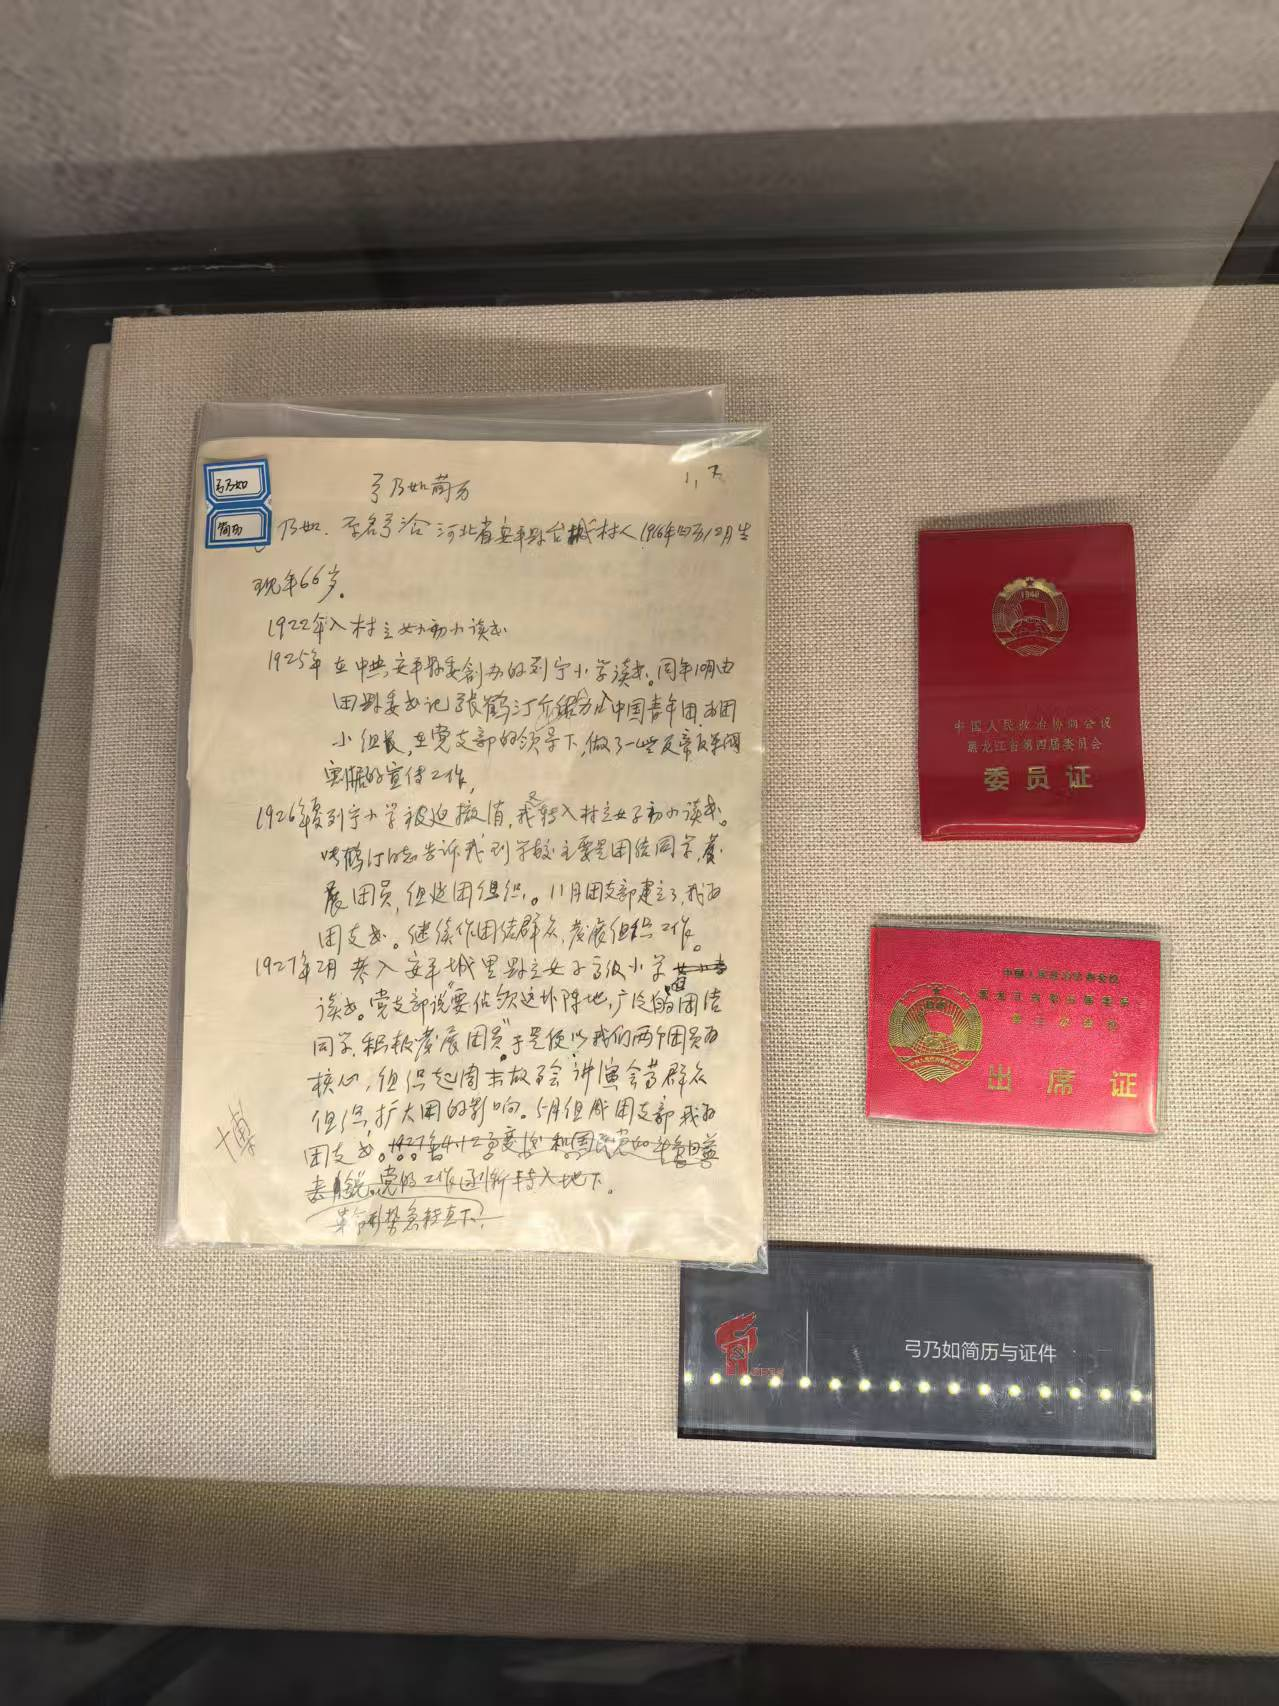 弓乃如
简历
弓乃如简历
乃如. 字名弓洽 河北省安平县台城村人 1916年四历12月生
现年66岁。
1922年入村立女小初小读书
1925年 在中共安平县委创办的列宁小学读书。同年 由
团县委书记张鹤汀介绍 入中国青年团 为团
小组长,在党支部的领导下,做了一些反帝反军阀
割据的宣传工作,
1926年夏列宁小学被迫撤消,我又转入村立女子初小读书。
张鹤汀同志告诉我到学校主要是团结同学,发
展团员,组建团组织。11月团支部建立了,我为
团支书。继续作团结群众,发展组织工作。
1927年2月 考入安平城里县立女子高级小学
读书。党支部说"要占领这块阵地,广泛的团结
同学,积极发展团员"于是便以我们两个团员为
核心,组织起周末故事会 讲演会等群众
组织,扩大团的影响。5月组成团支部 我为
团支书。1927年4.12事变
党的工作逐渐转入地下。
革命形势急转直下?
博
1948
中国人民政治协商会议
黑龙江省第四届委员会
委员证
中国人民政治协商会议
出席证
弓乃如简历与证件